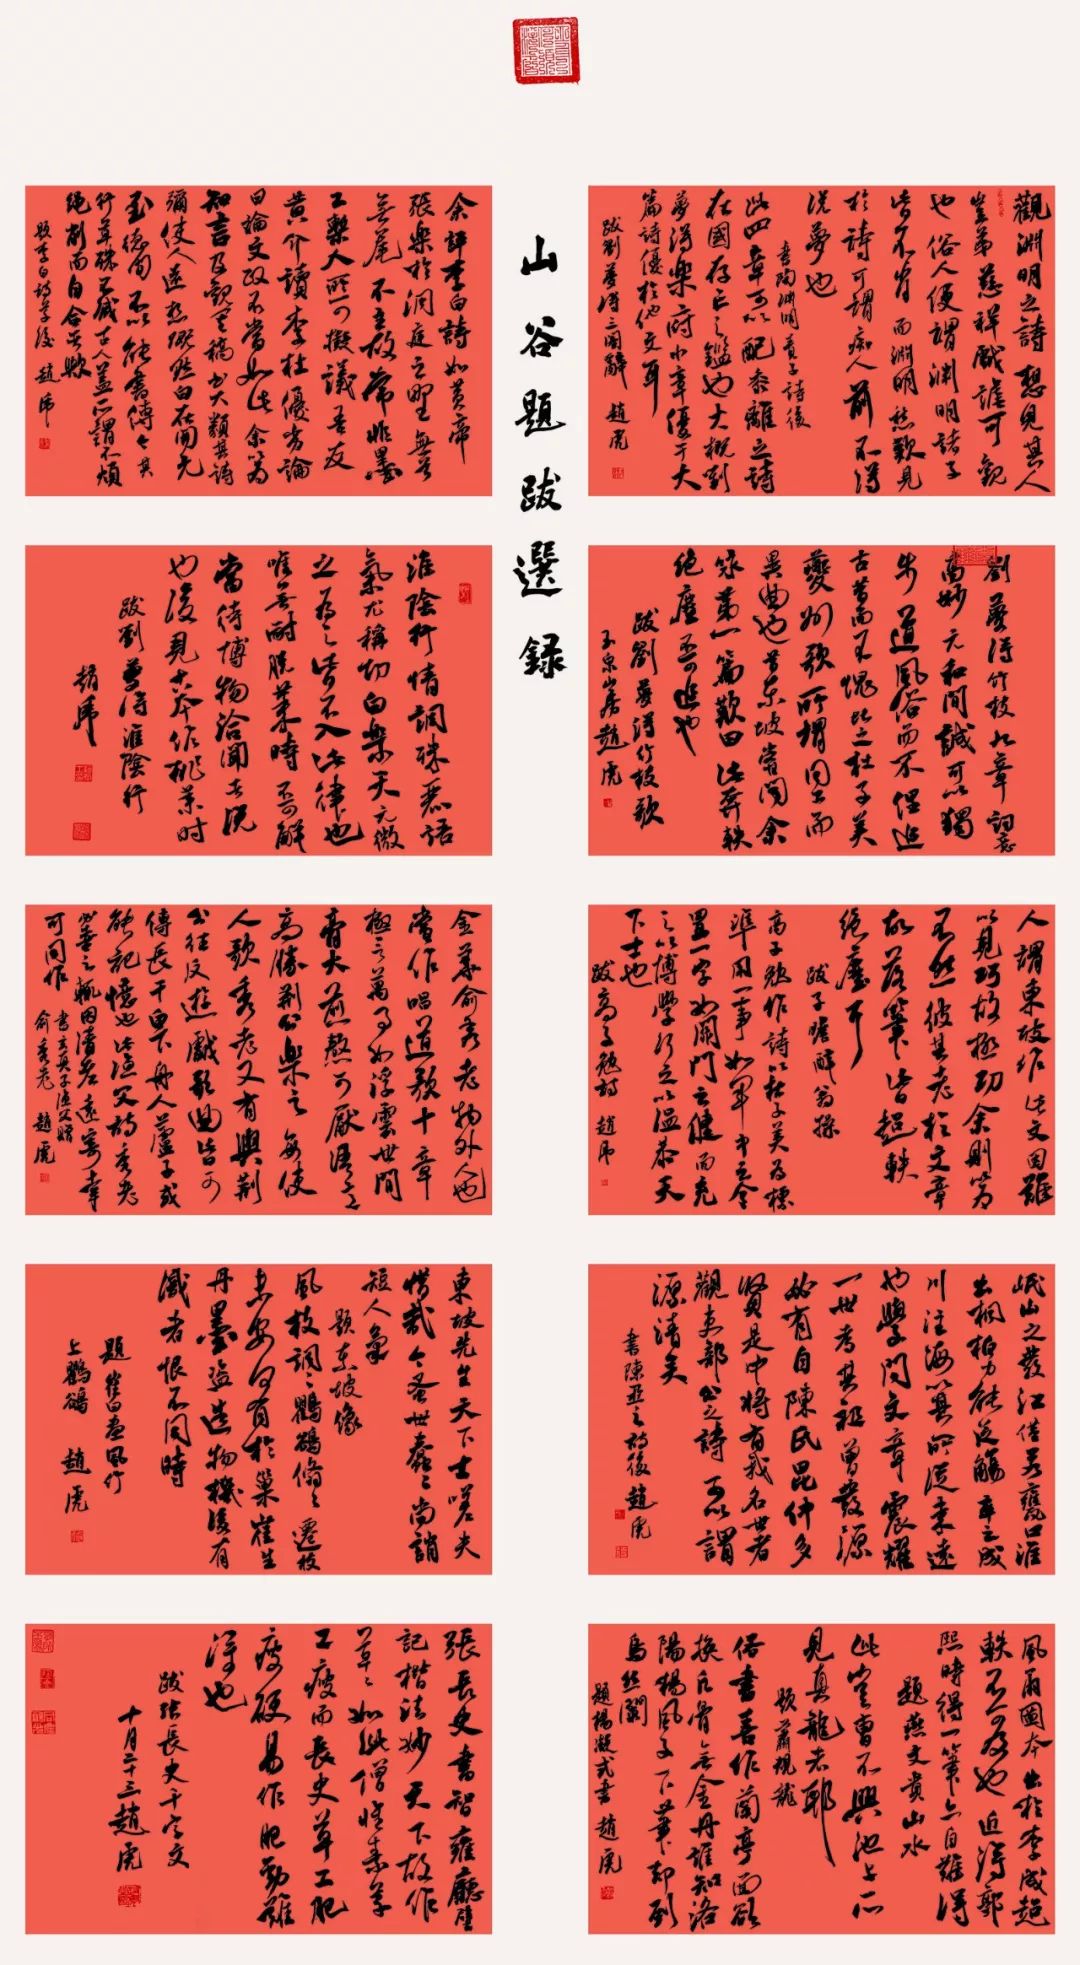 山谷題跋選录
觀淵明之詩想見其人
豈弟慈祥戲謔可觀
也俗人便謂淵明諸子
皆不肖而淵明愁歎見
於詩可謂痴人前不得
説夢也
書陶淵明責子詩後
此四章可以配黍離之詩
在國存亡之鑑也大概劉
夢得樂府小章優于大
篇詩優於他文耳
跋劉夢得三閣辭 趙虎
余評李白詩如黄帝
張樂於洞庭之野無首
無尾不主故常非墨
工槧人所可擬議吾友
黄介讀李杜優劣論
曰論文政不當如此余以為
知言及觀其稿书大類其詩
彌使人遠想慨然白在開元
至德間不以能書傳今其
行草殊不減古人蓋所謂不煩
绳削而自合者歟
題李白詩草後 趙虎
劉夢得竹枝九章詞意
高妙元和間誠可以獨
步道風俗而不俚追
古昔而不愧比之杜子美
夔州歌所謂同工而
異曲也昔东坡嘗聞余
咏第一篇歎曰此奔軼
绝塵不可追也
跋劉夢得竹枝歌
玉泉山房趙虎
淮陰行情調殊麗語
氣尤稱切白樂天元微
之为之皆不入此律也
唯無耐脱菜時不可解
當待博物洽聞者説
也後見古本作挑菜时
跋劉夢得淮陰行
趙虎
人謂東坡作此文因難
以見巧故極功余則以为
不然彼其老於文章
故落筆皆超軼
绝塵耳
跋子瞻醉翁操
高子勉作詩以杜子美为標
準用一事如軍中之令
置一字如關門之鍵而充
之以博學行之以温恭天
下士也
跋高子勉詩 趙虎
金華俞秀老物外人也
嘗作唱道歌十章
極言萬事如浮雲世間
膏火煎熬可厭語意
高勝荆公樂之每使
人歌秀老又有與荆
公往反遊戲歌曲皆可
傳長干白下舟人蘆子或
能記憶也此漁父詞秀老
必喜之輒因清老遠寄幸
可同作
書玄真子漁父贈
俞秀老 趙虎
岷山之發江僅若甕口淮
出桐柏力能泛觴卒之成
川注海以其所從来遠
也學問文章震耀
一世考其祖曾發源
必有自陳氏昆仲多
賢是中將有我名世者
觀吏部公之詩可以謂
源清矣
書陳亞之詩後 趙虎
東坡先生天下士嗟乎
惜哉今蚤世蠢蠢尚誚
短人氣
題东坡像
風枝調調鸜鵒翛翛遷枝
未安何有於巢崔生
丹墨盜造物機後有
鑑者恨不同時
題崔白畫風竹
上鸜鵒 趙虎
風雨圖本出於李成超
軼不可及也近得郭
熙時得一筆亦自難得
題燕文貴山水
此豈曹不興池上所
見真龍者耶
題蕭規龍
俗書喜作蘭亭面欲
换凡骨無金丹誰知洛
陽楊風子下筆却到
烏丝闌
題楊凝式書 趙虎
張長史書智雍廳壁
記楷法妙天下故作
草草如此僧懷素草
工瘦而長史草工肥
瘦硬易作肥勁難
得也
跋张長史千字文
十月二十三趙虎